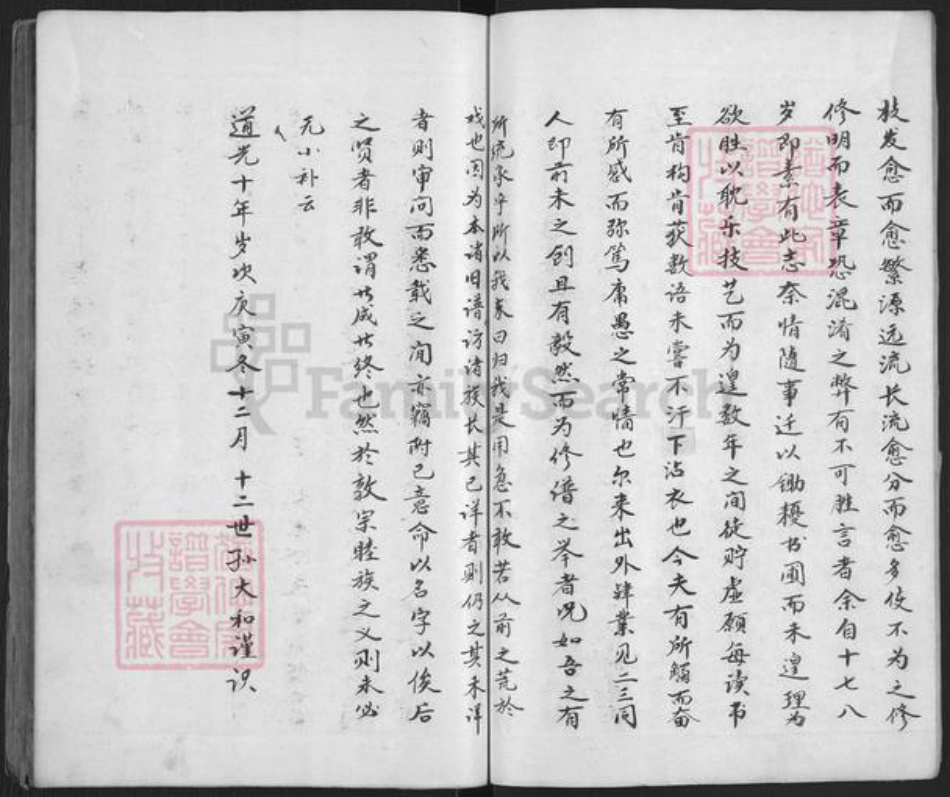 枝发愈而愈繁源远流长流愈分而愈多使不为之修
修明而表章恐混淆之弊有不可胜言者余自十七八
岁即素有此志奈情随事迁以锄耰书圃而未遑理为
欲胜以耽乐技艺而为遑数年之间徒贮虚愿每读书
至肯构肯获数语未尝不汗下沾衣也今夫有所触而奋
有所感而弥笃庸愚之常情也尔来出外肆业见二三同
人即前未之创且有毅然而为修谱之举者况如吾之有
所统承乎所以我来曰归我是用急不敢若从前之荒於
戏也因为本诸旧谱访诸族长其已详者则仍之其未详
者则审问而悉载之间亦窃附己意命以名字以俟后
之贤者非敢谓廿成廿终也然於敦宗睦族之义则未必
无小补云
道光十年岁次庚寅冬十二月 十二世孙大和谨识
谱学会
收藏
谱学会
收藏
FamilySearch